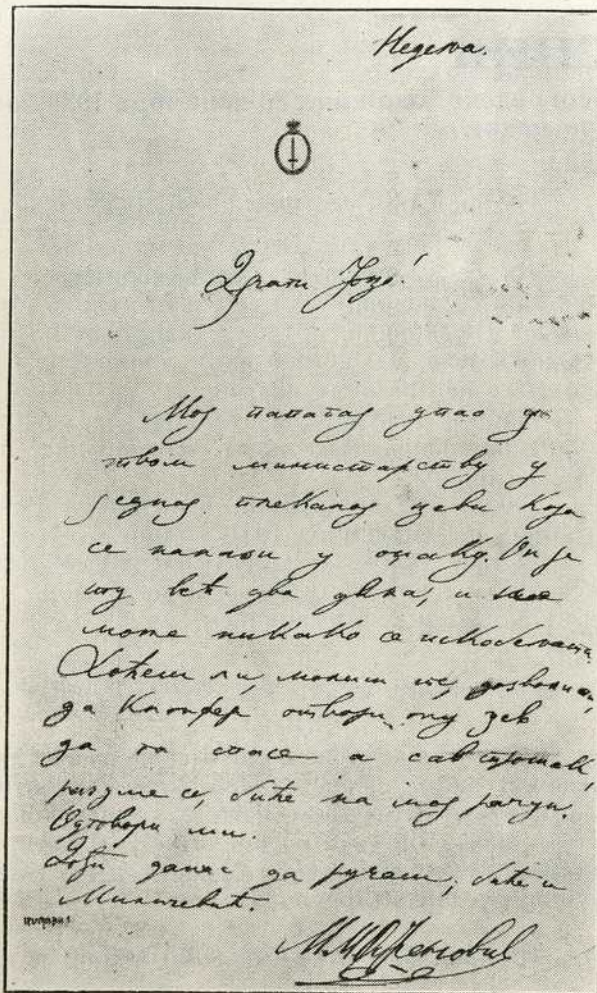 Недеља.
Драги
Мој папагај упао у
твом министарству у
једној плеканој цеви која
се налази у оџаку. Он је
ту већ два дана, и не
може никако се искобељати.
Хоћеш ли, молим те, дозволити,
да Клопфер отвори ону цев
да га спасе а сав трошак,
разуме се, биће на мој рачун.
Одговори ми.
Дођи данас да ручаш; биће и
М. М. Обреновић